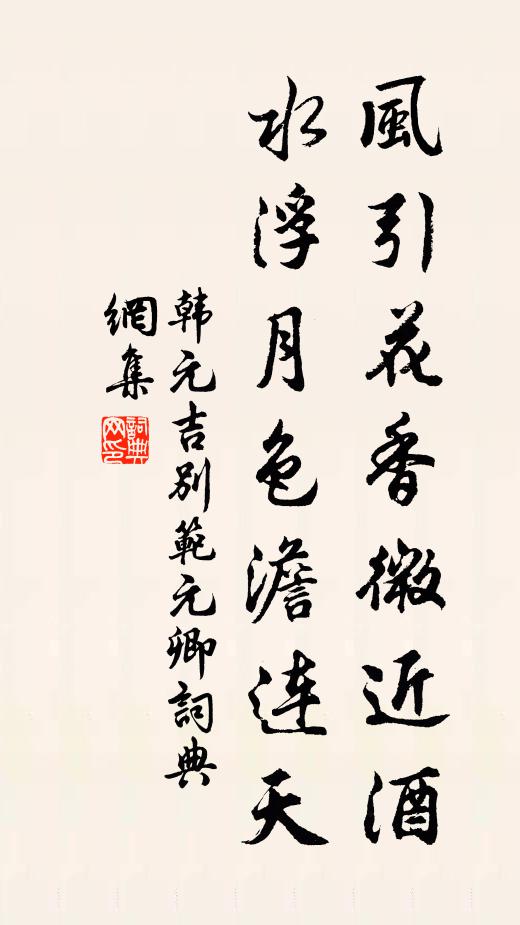 風引花香微近酒
水浮月色澹連天
韩元吉別範元卿詞典
網集
詞典網印